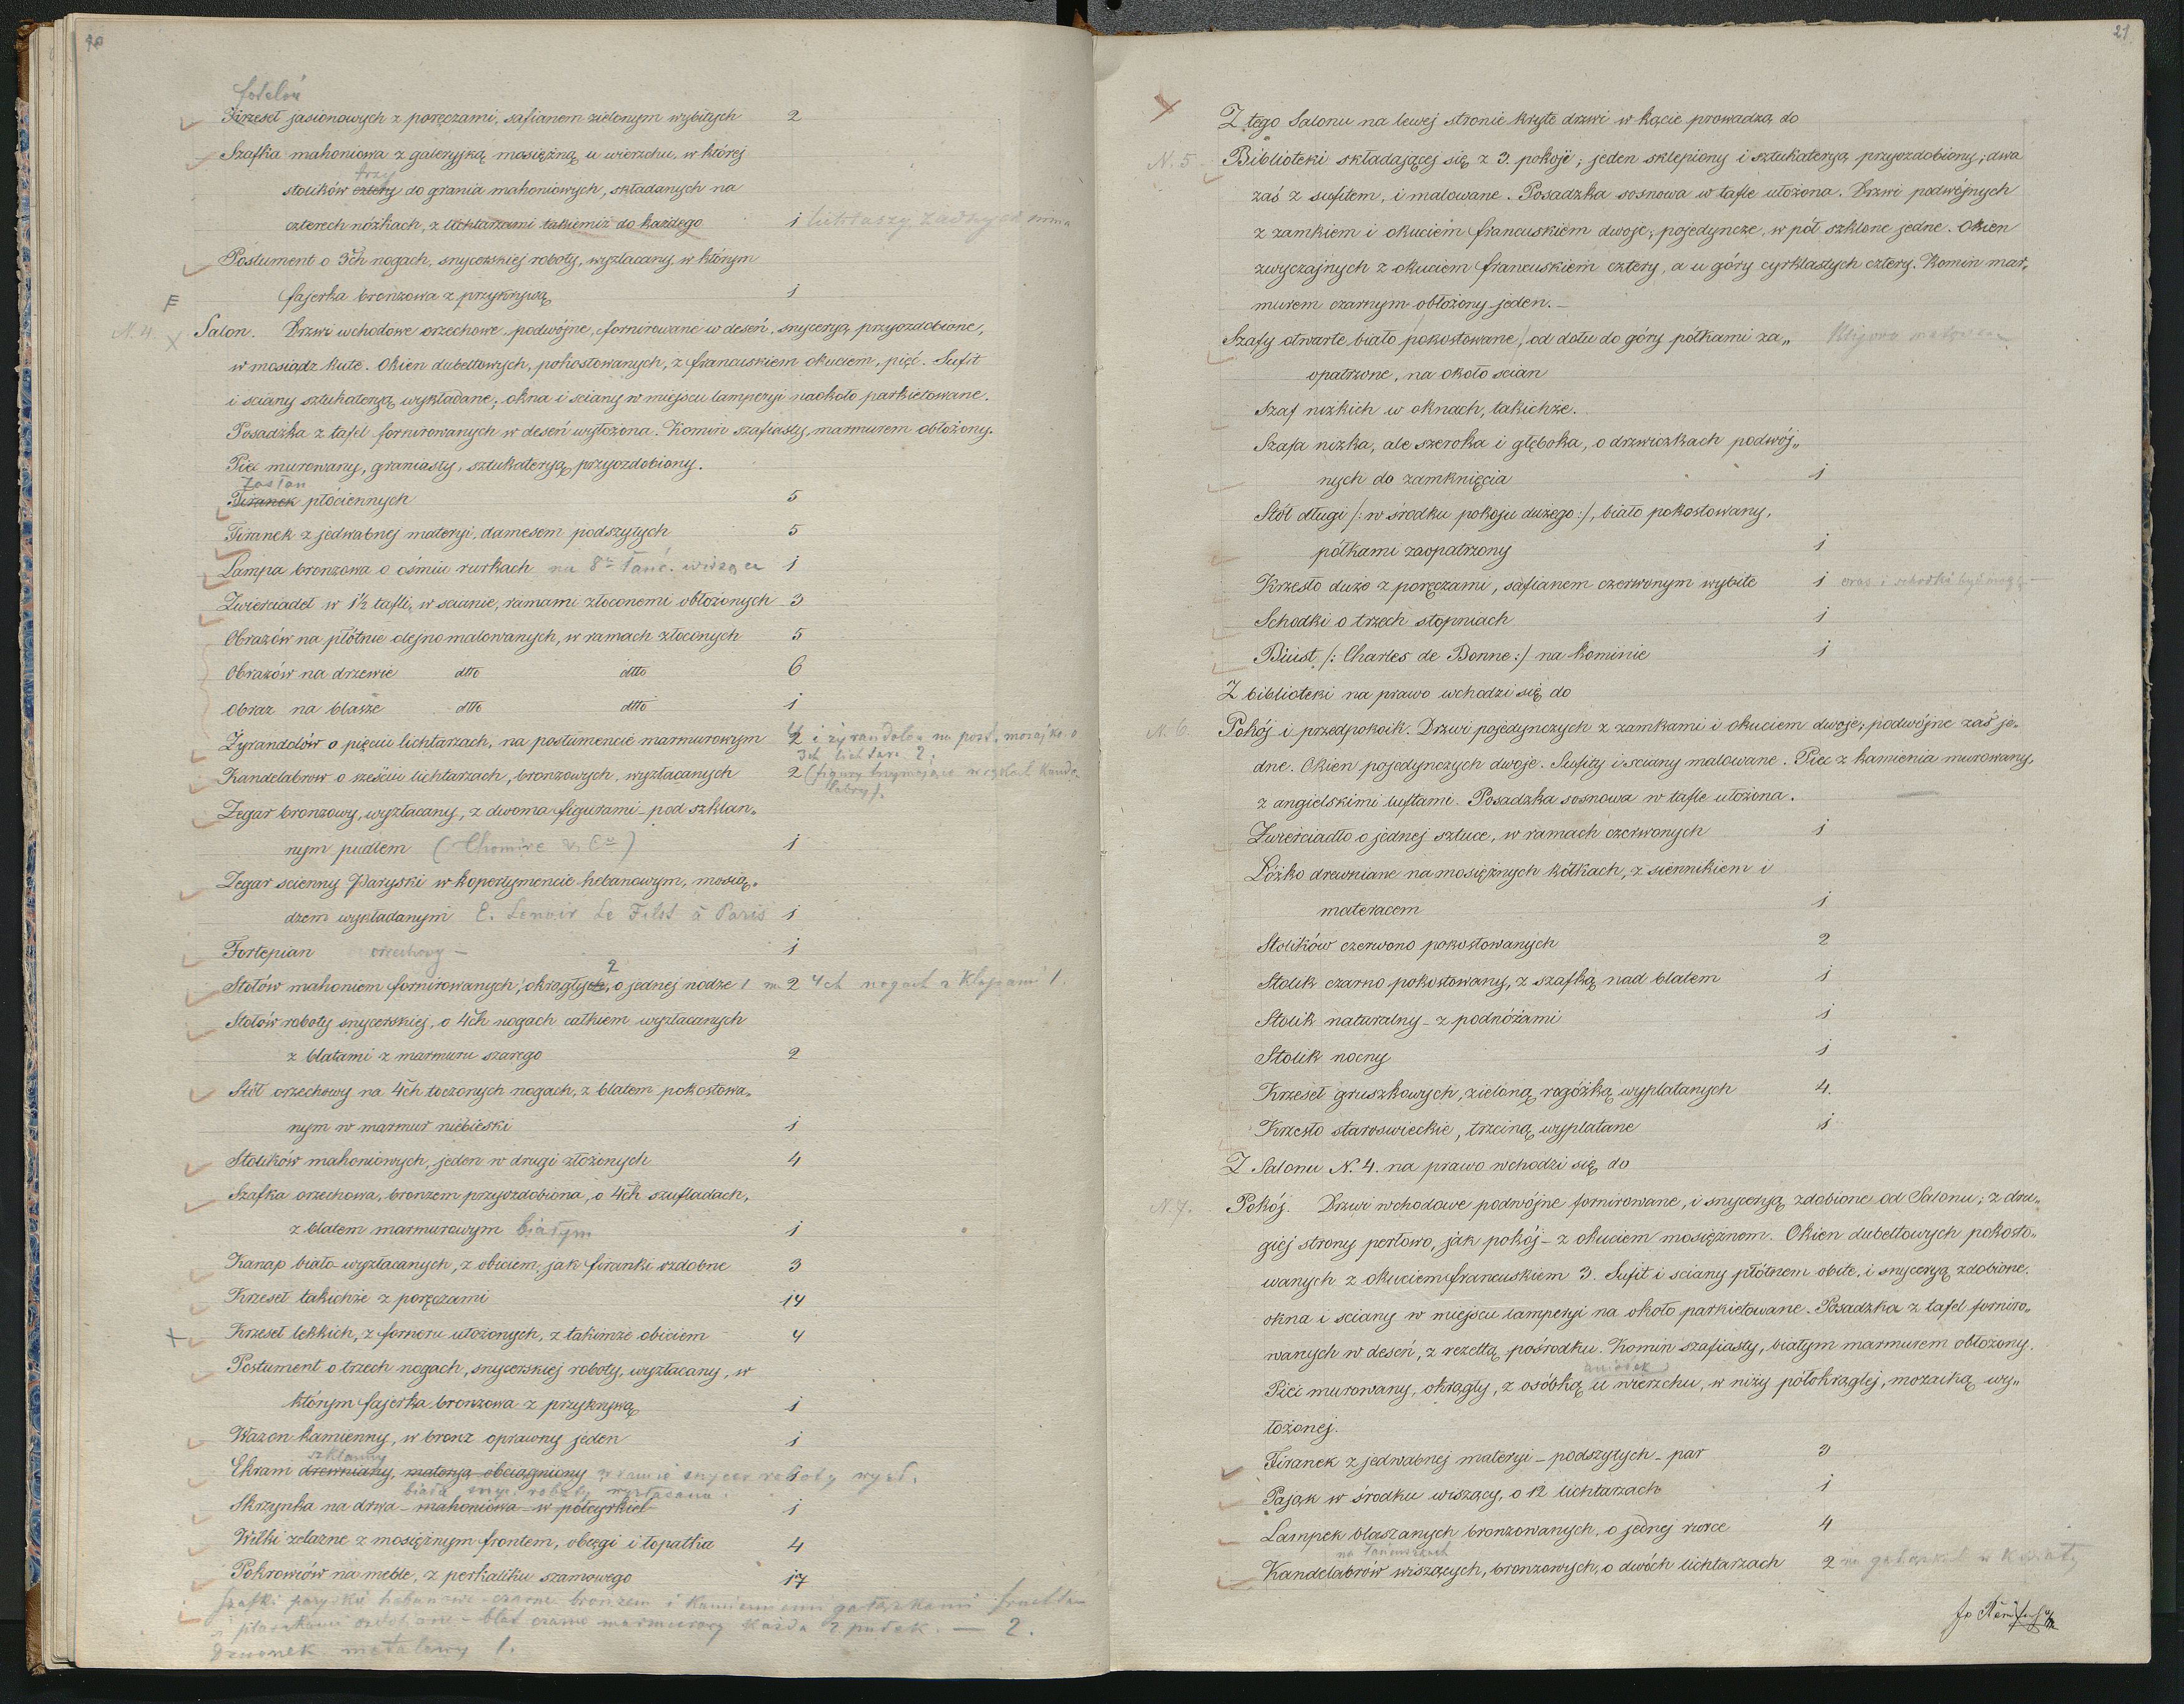 20
fotelów
Krzeseł jasionowych z poręczami, safianem zielonym wybitych 2
Szafka mahoniowa z galeryjką mosiężną u wierzchu, w której
trzy
stolików cztery do grania mahoniowych, składanych na
czterech nóżkach, z lichtarzami takiemiż do każdego 1 lichtarzy żadnych niema
Postument o 3ch nogach, snycerskiej roboty, wyzłacany, w którym
fajerka bronzowa z przykrywą 1
F
N. 4. Salon. Drzwi wchodowe orzechowe podwójne, fornirowane w deseń, snyceryą przyozdobione,
w mosiądz kute. Okien dubeltowych, pokostowanych, z francuskiem okuciem, pięć. Sufit
i sciany sztukateryą wykładane; okna i sciany w miejscu lamperyi naokoło parkietowane.
Posadzka z tafel fornirowanych w deseń wyłożona. Komin szafiasty, marmurem obłożony.
Piec murowany, graniasty, sztukateryą przyozdobiony.
Zasłon
Firanek płóciennych 5
Firanek z jedwabnej materyi, damesem podszytych 5
Lampa bronzowa o ośmiu rurkach na 8 łańc. wisząca 1
Zwierciadeł w 1½ tafli, w scianie, ramami złoconemi obłożonych 3
Obrazów na płótnie olejno malowanych, w ramach złoconych 5
Obrazów na drzewie dtto dtto 6
Obraz na blasze dtto dtto 1
Zyrandolów o pięciu lichtarzach, na postumencie marmurowym 2 i żyrandole na post. mozajk. o
3ch lichtarz. 2.
Kandelabrow o sześciu lichtarzach, bronzowych, wyzłacanych 2 (figury trzymające w rękach kande-
labry).
Zegar bronzowy, wyzłacany, z dwoma figurami - pod szklan„
nym pudłem (Thomire & Cie) 1
Zegar scienny Paryski w kopertymencie hebanowym, mosią„
dzem wykładanym E. Lenoir Le Fils à Paris 1
Fortepian orzechowy - 1
2
Stołów mahoniem fornirowanych, okrągłych, o jednej nodze 1 2 4ch nogach z klapami 1.
Stołów roboty snycerskiej, o 4ch nogach całkiem wyzłacanych
z blatami z marmuru szarego 2
Stół orzechowy na 4ch toczonych nogach, z blatem pokostowa„
nym w marmur niebieski 1
Stolików mahoniowych, jeden w drugi złożonych 4
Szafka orzechowa, bronzem przyozdobiona, o 4ch szufladach,
z blatem marmurowym białym 1
Kanap biało-wyzłacanych, z obiciem jak firanki ozdobne 3
Krzeseł takichże z poręczami 14
Krzeseł lekkich, z forneru ułożonych, z takimże obiciem 4
Postument o trzech nogach, snycerskiej roboty, wyzłacany, w
którym fajerka bronzowa z przykrywą 1
Wazon kamienny, w bronz oprawny jeden 1
szklanny
Ekram drewniany, materyą obciągniony w ramie snycer roboty wyzł. 1
biała snyc. roboty wyzłacana.
Skrzynka na drwa - mahoniowa - w półcyrkiel 1
Wilki żelazne z mosiężnym frontem, obcęgi i łopatka 4
Pokrowców na meble, z perkaliku szamowego 17
Szafki paryskie hebanowe czarne bronzem i kamiennemi gałązkami
blat czarno marmurowy każda 2 półek. — 2.
Dzwonek metalowy 1.
21.
Z tego Salonu na lewej stronie kryte drzwi w kącie prowadzą do
N. 5. Biblioteki składającej się z 3. pokoji; jeden sklepiony i sztukateryą przyozdobiony; dwa
zaś z sufitem, i malowane. Posadzka sosnowa w tafle ułożona. Drzwi podwójnych
z zamkiem i okuciem francuskiem dwoje; pojedyncze, w pół szklone jedne. Okien
zwyczajnych z okuciem francuskiem cztery, a u góry cyrklastych cztery. Komin mar„
murem czarnym obłożony jeden. -
Szafy otwarte biało pokostowane, od dołu do góry półkami za„
opatrzone, na około scian
Szaf nizkich w oknach, takichże.
Szafa nizka, ale szeroka i głęboka, o drzwiczkach podwój„
nych do zamknięcia 1
Stół długi /: w środku pokoju dużego :/, biało pokostowany,
półkami zaopatrzony 1
Krzesło duże z poręczami, safianem czerwonym wybite 1 oraz i schodki być mogą -
Schodki o trzech stopniach 1
Biust /: Charles de Bonne :/ na kominie 1
Z biblioteki na prawo wchodzi się do
N. 6. Pokój i przedpokoik. Drzwi pojedynczych z zamkami i okuciem dwoje; podwójne zaś je„
dne. Okien pojedynczych dwoje. Sufity i sciany malowane. Piec z kamienia murowany,
z angielskimi luftami. Posadzka sosnowa w tafle ułożona.
Zwierciadło o jednej sztuce, w ramach czerwonych 1
Łóżko drewniane na mosiężnych kółkach, z siennikiem i
materacem 1
Stolików czerwono pokostowanych 2
Stolik czarno pokostowany, z szafką nad blatem 1
Stolik naturalny - z podnóżami 1
Stolik nocny 1
Krzeseł gruszkowych, zieloną rogóżką wyplatanych 4.
Krzesło staroswieckie, trzciną wyplatane 1
Z Salonu N. 4. na prawo wchodzi się do
N. 7. Pokój. Drzwi wchodowe podwójne fornirowane, i snyceryą zdobione od Salonu; z dru„
giej strony perłowo, jak pokój - z okuciem mosiężnem. Okien dubeltowych pokosto„
wanych z okuciem francuskiem 3. Sufit i sciany płótnem obite, i snyceryą zdobione.
okna i sciany w miejscu lamperyi na około parkietowane. Posadzka z tafel forniro„
wanych w deseń, z rezettą pośrodku. Komin szafiasty, białym marmurem obłożony.
aniołek
Piec murowany, okrągły, z osóbką u wierzchu, w niży półokrągłej, mozaiką wy„
łożonej.
Firanek z jedwabnej materyi - podszytych - par 3
Pająk w środku wiszący, o 12 lichtarzach 1
Lampek blaszanych bronzowanych, o jednej rurce 4
na łańcuszkach
Kandelabrów wiszących, bronzowych, o dwóch lichtarzach 2 na gałązkach w kwiaty